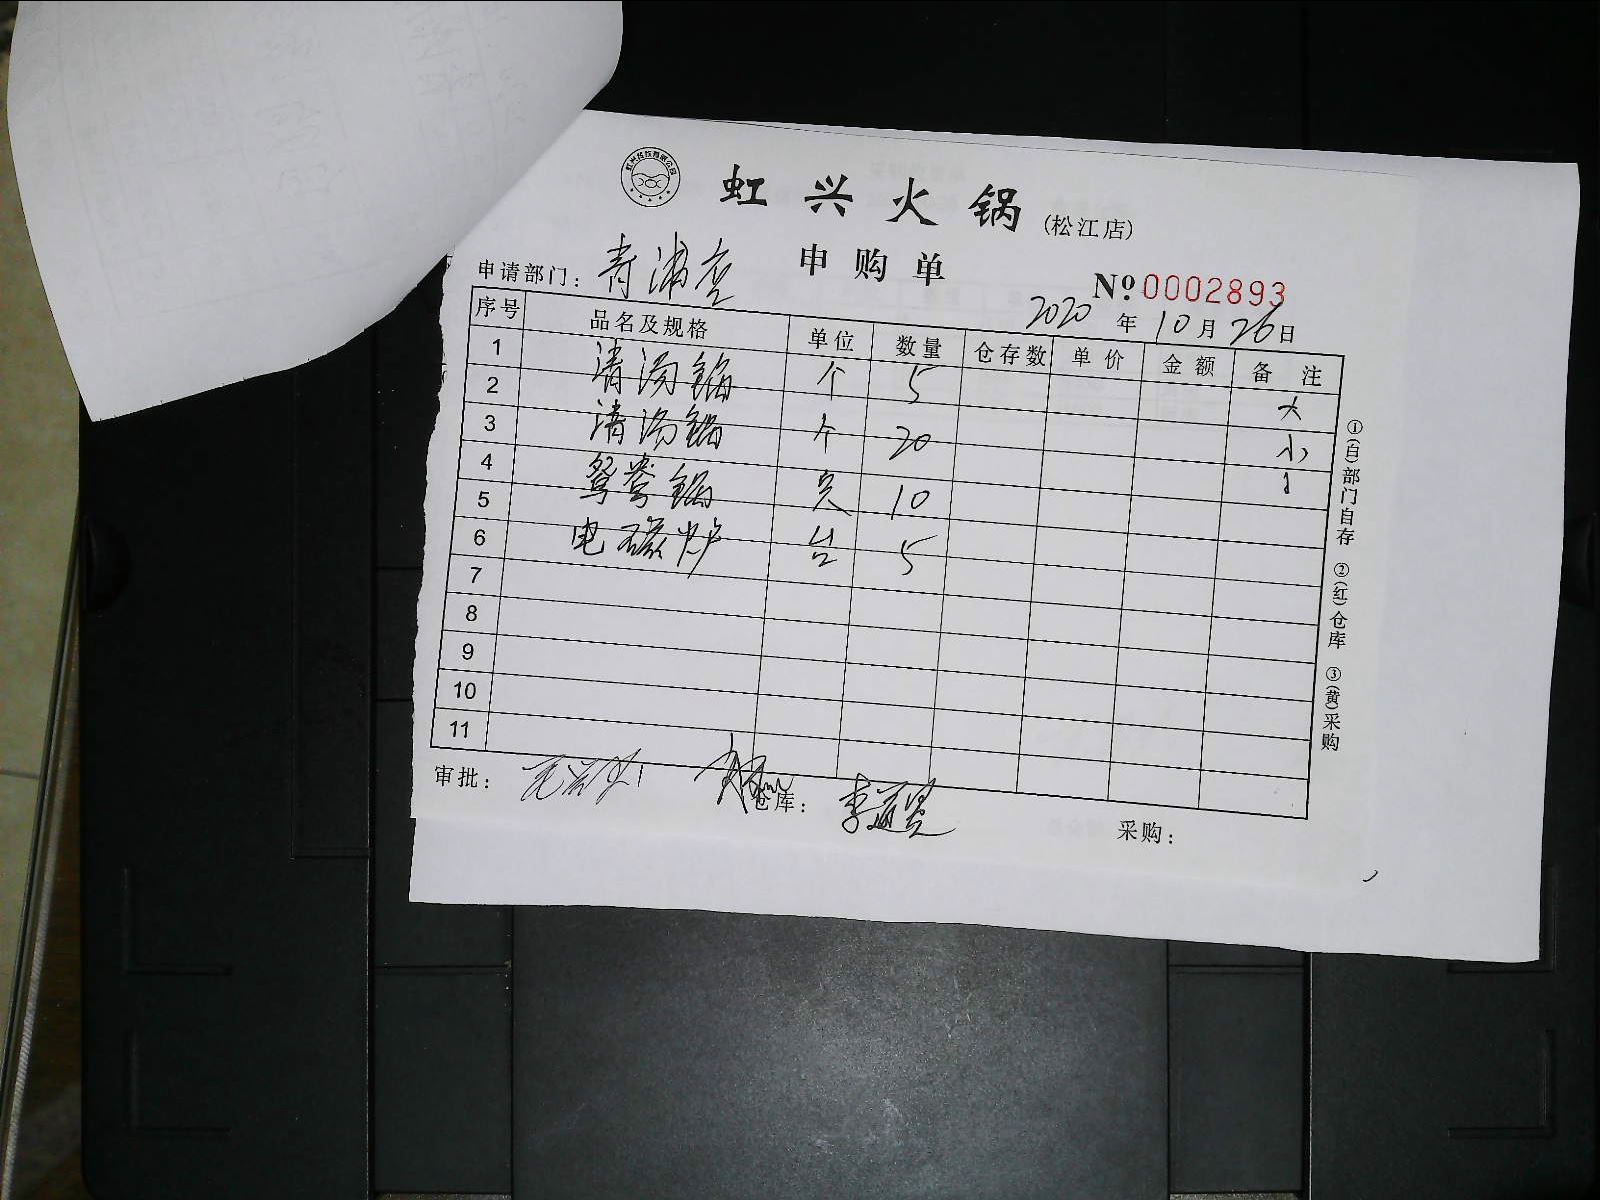 虹兴火锅(松江店)
申购单
申请部门: 青浦店
Nº 0002893
2020年10月26日
序号 品名及规格 单位 数量 仓存数 单价 金额 备注
1 清汤锅 个 5 大
2
3 清汤锅 个 20 小
4 鸳鸯锅 10
5
6 电磁炉 台 5
7
8
9
10
11
审批: 仓库: 采购:
①(白)部门自存 ②(红)仓库 ③(黄)采购